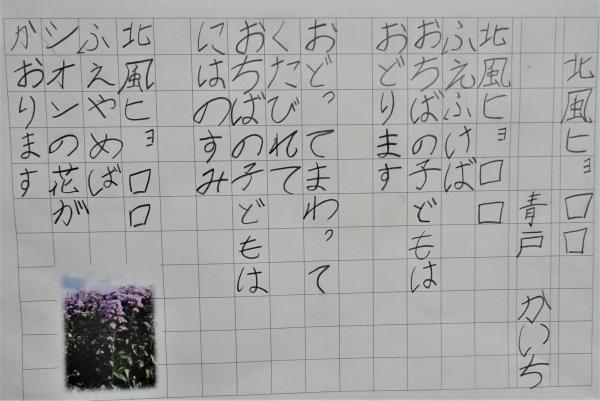 北風ヒョロロ
青戸 かいち
北風ヒョロロ
ふえふけば
おちばの子どもは
おどります
おどってまわって
くたびれて
おちばの子どもは
にはのすみ
北風ヒョロロ
ふえやめば
シオンの花が
がおります